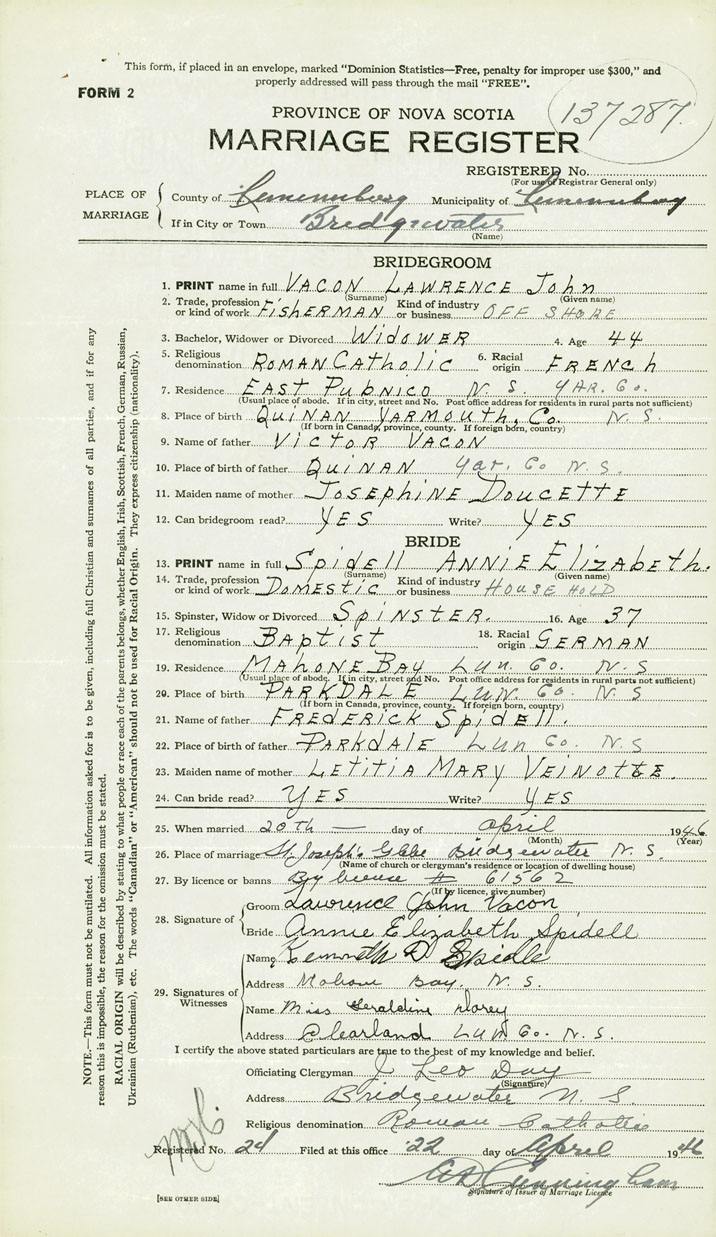 This form, if placed in an envelope, marked "Dominion Statistics—Free, penalty for improper use $300," and
properly addressed will pass through the mail "FREE".
FORM 2
PROVINCE OF NOVA SCOTIA
137287
MARRIAGE REGISTER
REGISTERED No.
(For use of Registrar General only)
PLACE OF MARRIAGE
County of Lunenburg Municipality of Lunenburg
If in City or Town Bridgewater
(Name)
BRIDEGROOM
1. PRINT name in full VACON LAWRENCE John
(Surname) (Given name)
2. Trade, profession or kind of work FISHERMAN Kind of industry or business OFF SHORE
3. Bachelor, Widower or Divorced WIDOWER 4. Age 44
5. Religious denomination ROMAN CAtholic 6. Racial origin FRENCh
7. Residence EAST PubNICO N. S. YAR. Co.
(Usual place of abode. If in city, street and No. Post office address for residents in rural parts not sufficient)
8. Place of birth QUINAN YARMOUTH. Co. N. S.
(If born in Canada, province, county. If foreign born, country)
9. Name of father VICTOR VACON
10. Place of birth of father QUINAN Yar. Co N. S.
11. Maiden name of mother JOSEPHINE DOUCETTE
12. Can bridegroom read? YES Write? YES
BRIDE
13. PRINT name in full Spidell ANNIE Elizabeth.
(Surname) (Given name)
14. Trade, profession or kind of work DOMESTIC Kind of industry or business HOUSE HOLD
15. Spinster, Widow or Divorced SPINSTER. 16. Age 37
17. Religious denomination BAptist 18. Racial origin GERMAN
19. Residence MAHONE BAY LUN. Co. N. S
(Usual place of abode. If in city, street and No. Post office address for residents in rural parts not sufficient)
20. Place of birth PARKDALE LUN. Co. N. S
(If born in Canada, province, county. If foreign born, country)
21. Name of father FREDERICK Spidell.
22. Place of birth of father PARKDALE LUN Co. N. S
23. Maiden name of mother LETITIA MARY VEINOTTE.
24. Can bride read? YES Write? YES
25. When married 20th day of April 1946
(Month) (Year)
26. Place of marriage St. Joseph's Glebe Bridgewater N. S.
(Name of church or clergyman's residence or location of dwelling house)
27. By licence or banns By license # 61562
(If by licence, give number)
28. Signature of
Groom Lawrence John Vacon
Bride Annie Elizabeth Spidell
29. Signatures of Witnesses
Name Kenneth D Spidle
Address Mahone Bay. N. S.
Name Miss Geraldine Dorey
Address Clearland LUN Co. N. S.
I certify the above stated particulars are true to the best of my knowledge and belief.
Officiating Clergyman J Leo Day
(Signature)
Address Bridgewater N. S.
Religious denomination Roman Catholic
Registered No. 24 Filed at this office 22 day of April 1946
Cunningham
Signature of Issuer of Marriage Licence
[SEE OTHER SIDE]
NOTE.—This form must not be mutilated. All information asked for is to be given, including full Christian and surnames of all parties, and if for any
reason this is impossible, the reason for the omission must be stated.
RACIAL ORIGIN will be described by stating to what people or race each of the parents belongs, whether English, Irish, Scottish, French, German, Russian,
Ukrainian (Ruthenian), etc. The words "Canadian" or "American" should not be used for Racial Origin. They express citizenship (nationality).